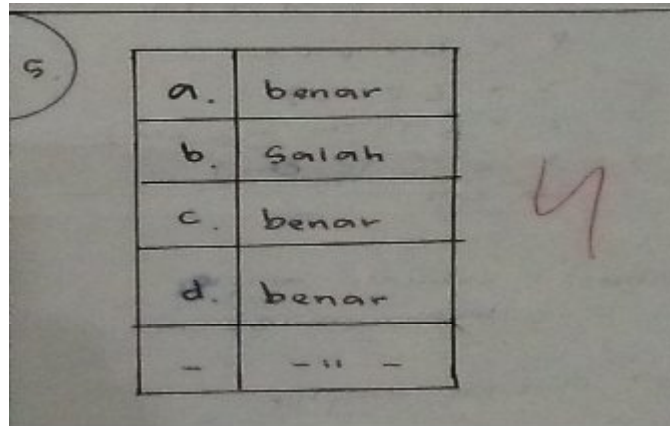 5.
a. benar
b. Salah
c. benar
d. benar
- - " -
4